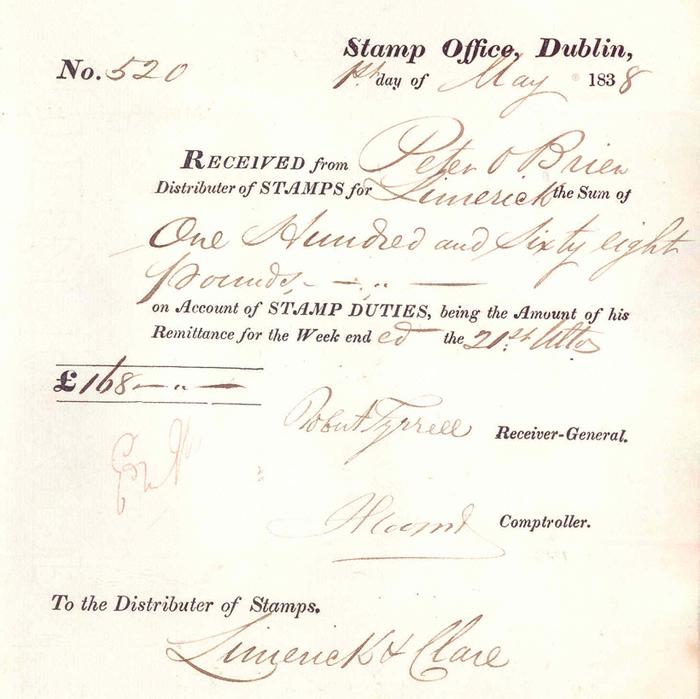 Stamp Office, Dublin,
No. 520
1st day of May 1838
RECEIVED from Peter O Brien
Distributer of STAMPS for Limerick the Sum of
One Hundred and Sixty eight
Pounds — „ —
on Account of STAMP DUTIES, being the Amount of his
Remittance for the Week end ed the 21st Ulto
£168 — „ —
Robert Tyrrell Receiver-General.
Comptroller.
To the Distributer of Stamps.
Limerick & Clare